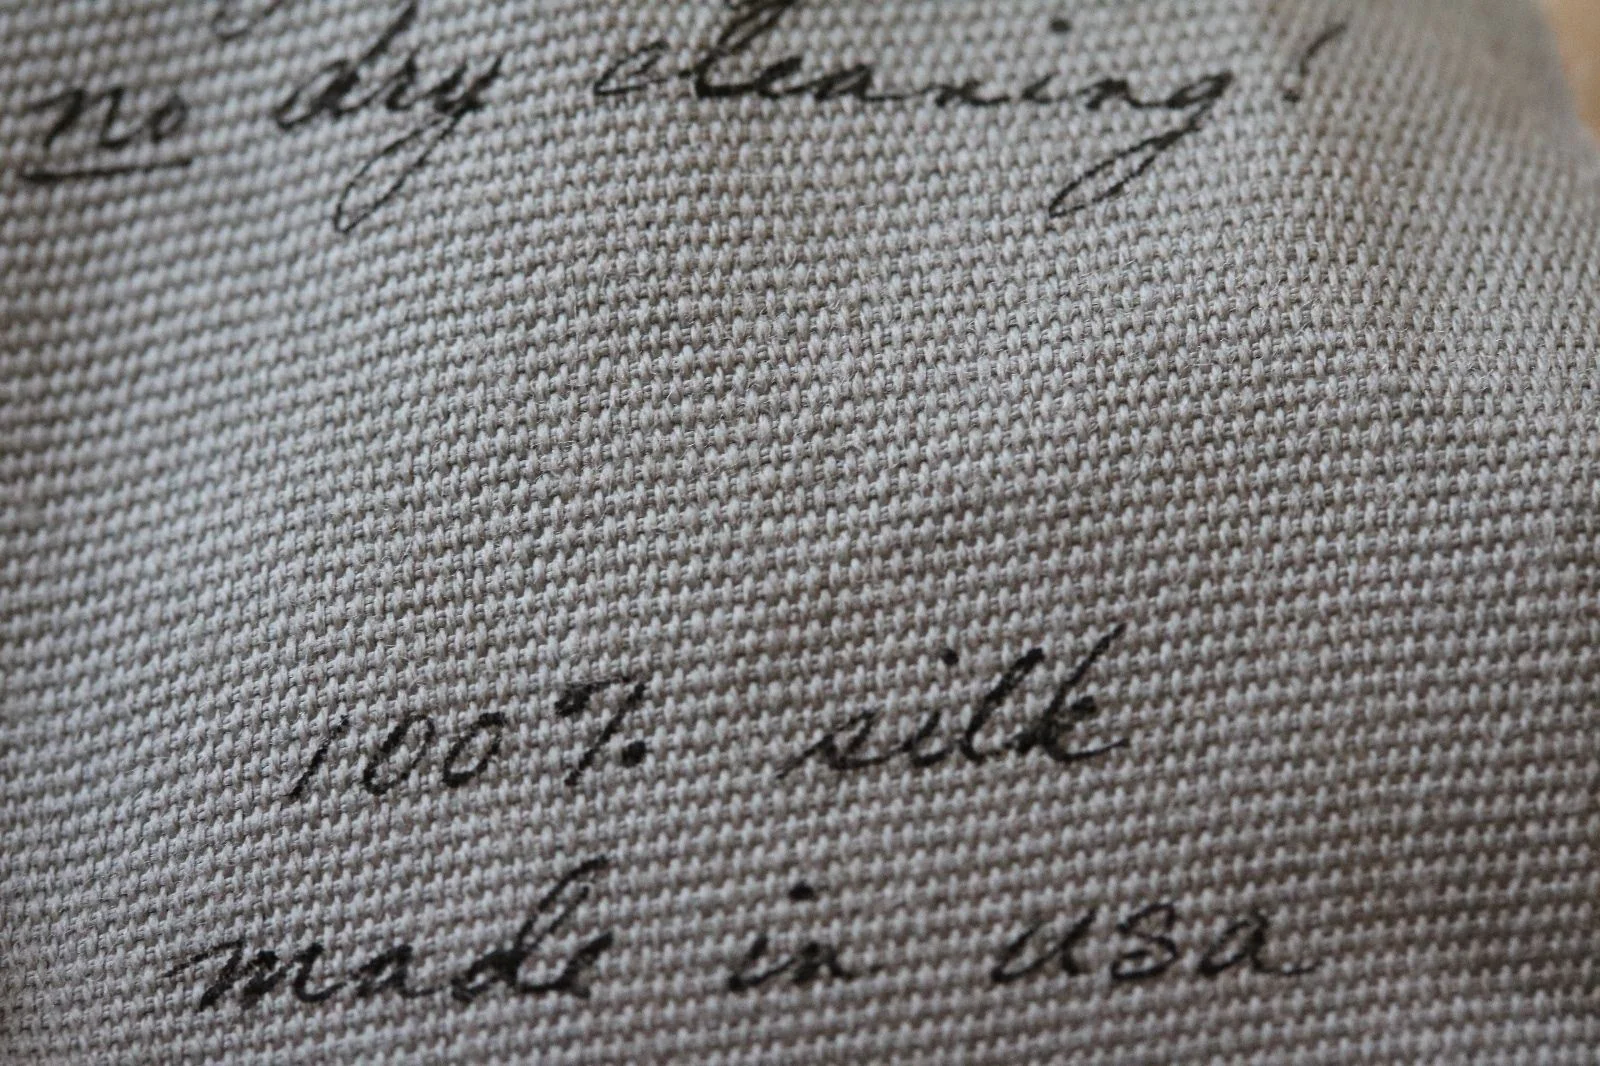 no dry cleaning!
100% silk
made in usa